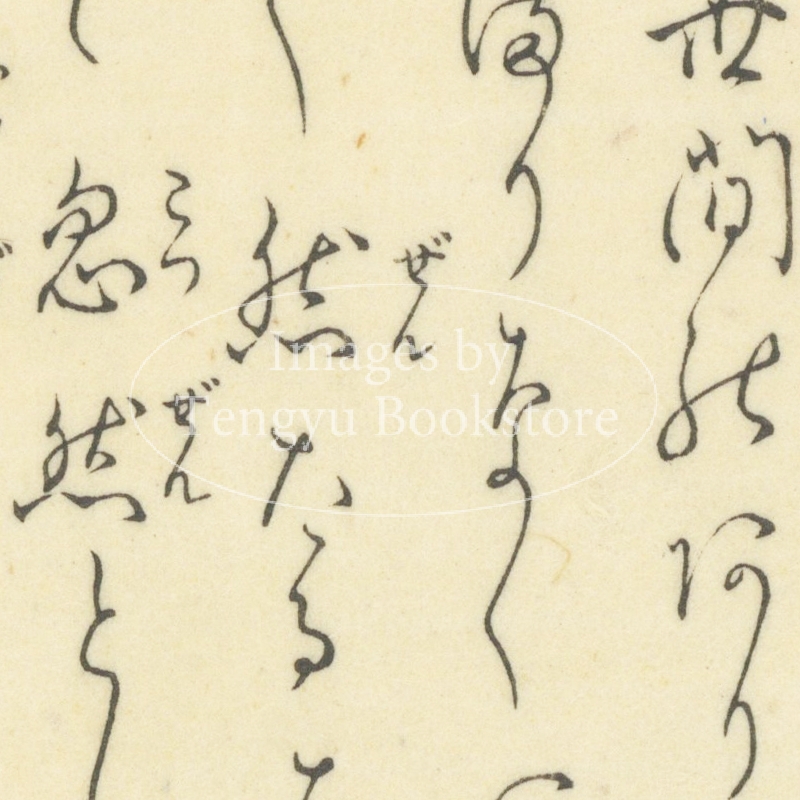 世間のあり
まりなく
然たる
ぜん
忽然と
こつぜん
Images by
Tengyu Bookstore